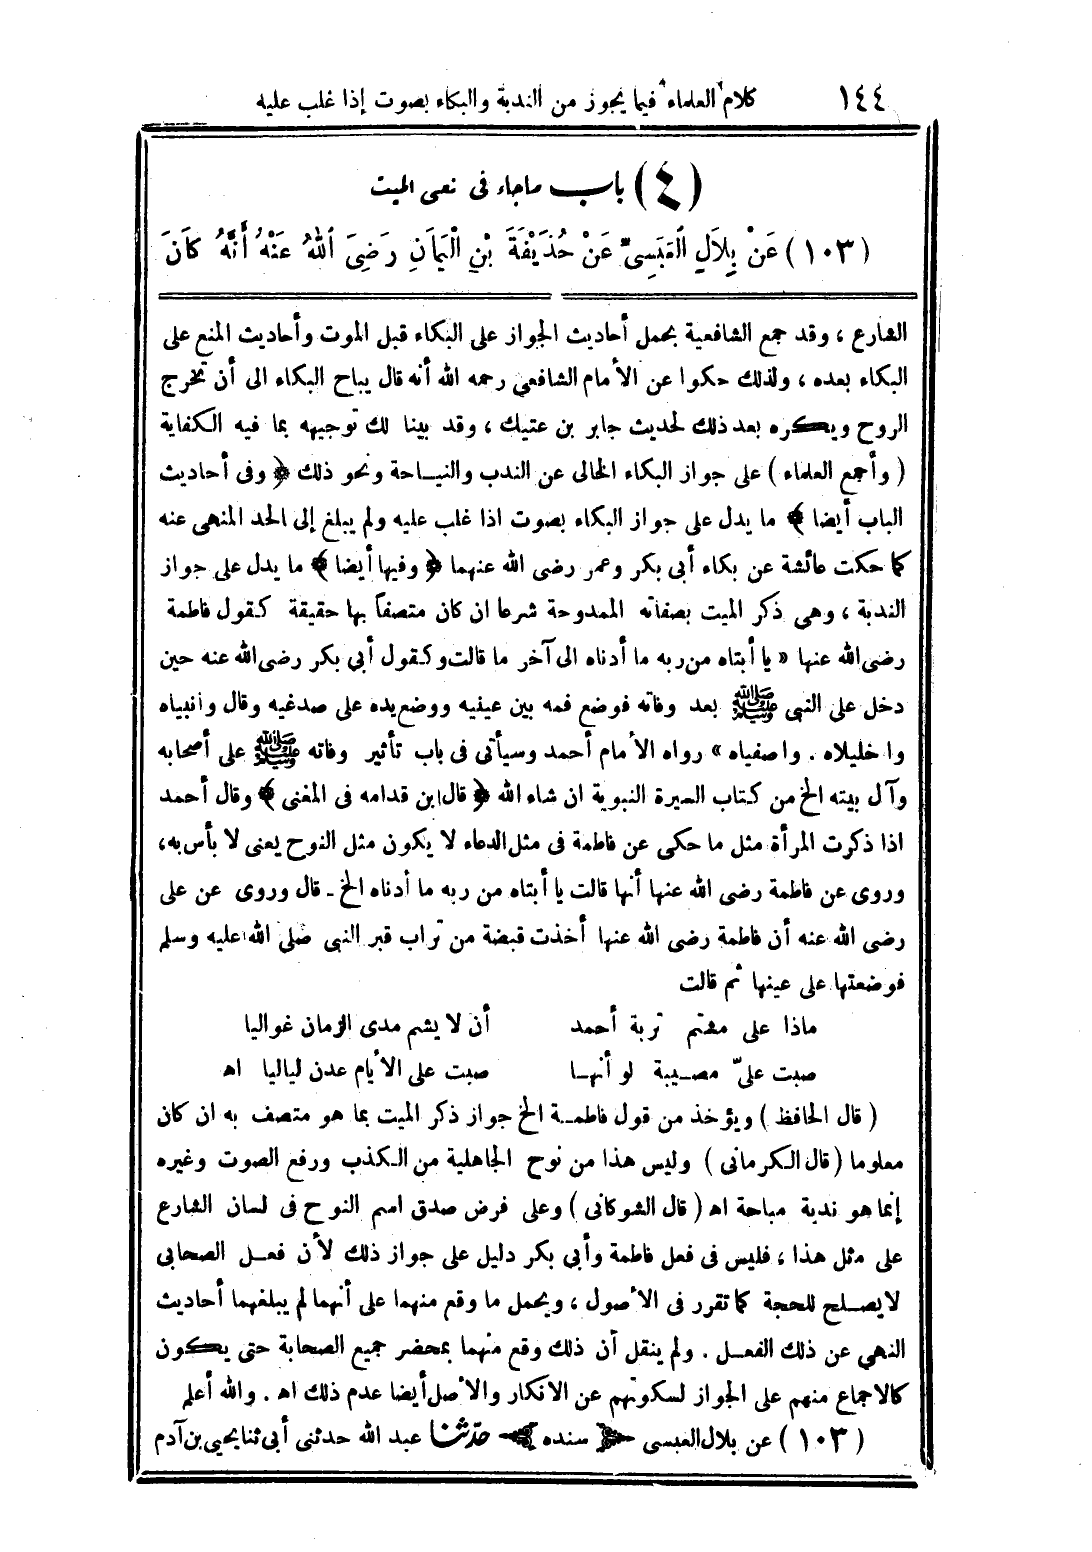 ١٤٤ كلام العلماء فيما يجوز من الندبة والبكاء بصوت إذا غلب عليه
(٤) باب ماجاء فى نعى الميت
(١٠٣) عَنْ بِلاَلٍ الْعَبَسِىِّ عَنْ حُذَيْفَةَ بْنِ الْيَمَانِ رَضِىَ اللهُ عَنْهُ أَنَّهُ كَانَ
الشارع ، وقد جمع الشافعية بحمل أحاديث الجواز على البكاء قبل الموت وأحاديث المنع على
البكاء بعده ، ولذلك حكوا عن الأمام الشافعي رحمه الله أنه قال يباح البكاء الى أن تخرج
الروح ويكره بعد ذلك لحديث جابر بن عتيك ، وقد بينا لك توجيهه بما فيه الكفاية
( وأجمع العلماء ) على جواز البكاء الخالى عن الندب والنياحة ونحو ذلك ﴿ وفى أحاديث
الباب أيضا ﴾ ما يدل على جواز البكاء بصوت اذا غلب عليه ولم يبلغ إلى الحد المنهى عنه
كما حكت عائشة عن بكاء أبى بكر وعمر رضى الله عنهما ﴿ وفيها أيضا ﴾ ما يدل على جواز
الندبة ، وهي ذكر الميت بصفاته الممدوحة شرعا ان كان متصفاً بها حقيقة كقول فاطمة
رضى الله عنها « يا أبتاه من ربه ما أدناه الى آخر ما قالت وكقول أبي بكر رضى الله عنه حين
دخل على النبى ﷺ بعد وفاته فوضع فمه بين عينيه ووضع يده على صدغيه وقال وانبياه
وا خليلاه . واصفياه » رواه الأمام أحمد وسيأتى فى باب تأثير وفاته ﷺ على أصحابه
وآل بيته الخ من كتاب السيرة النبوية ان شاء الله ﴿ قال ابن قدامه فى المغنى ﴾ وقال أحمد
اذا ذكرت المرأة مثل ما حكى عن فاطمة فى مثل الدعاء لا يكون مثل النوح يعنى لا بأس به،
وروى عن فاطمة رضى الله عنها أنها قالت يا أبتاه من ربه ما أدناه الخ ـ قال وروى عن على
رضى الله عنه أن فاطمة رضى الله عنها أخذت قبضة من تراب قبر النبى صلى الله عليه وسلم
فوضعتها على عينها ثم قالت
ماذا على مشتم تربة أحمد أن لا يشم مدى الزمان غواليا
صبت علىّ مصيبة لو أنها صبت على الأيام عدن لياليا اه
( قال الحافظ ) ويؤخذ من قول فاطمة الخ جواز ذكر الميت بما هو متصف به ان كان
معلوما ( قال الكرمانى ) وليس هذا من نوح الجاهلية من الكذب ورفع الصوت وغيره
إنما هو ندبة مباحة اه ( قال الشوكانى ) وعلى فرض صدق اسم النوح فى لسان الشارع
على مثل هذا ، فليس فى فعل فاطمة وأبي بكر دليل على جواز ذلك لأن فعل الصحابى
لا يصلح للحجة كما تقرر فى الأصول ، ويحمل ما وقع منهما على أنهما لم يبلغهما أحاديث
النهي عن ذلك الفعل . ولم ينقل أن ذلك وقع منهما بمحضر جميع الصحابة حتى يكون
كالاجماع منهم على الجواز لسكوتهم عن الانكار والأصل أيضا عدم ذلك اه . والله أعلم
( ١٠٣ ) عن بلال العبسى ﴿ سنده ﴾ حدّثنا عبد الله حدثنى أبى ثنا يحيى بن آدم